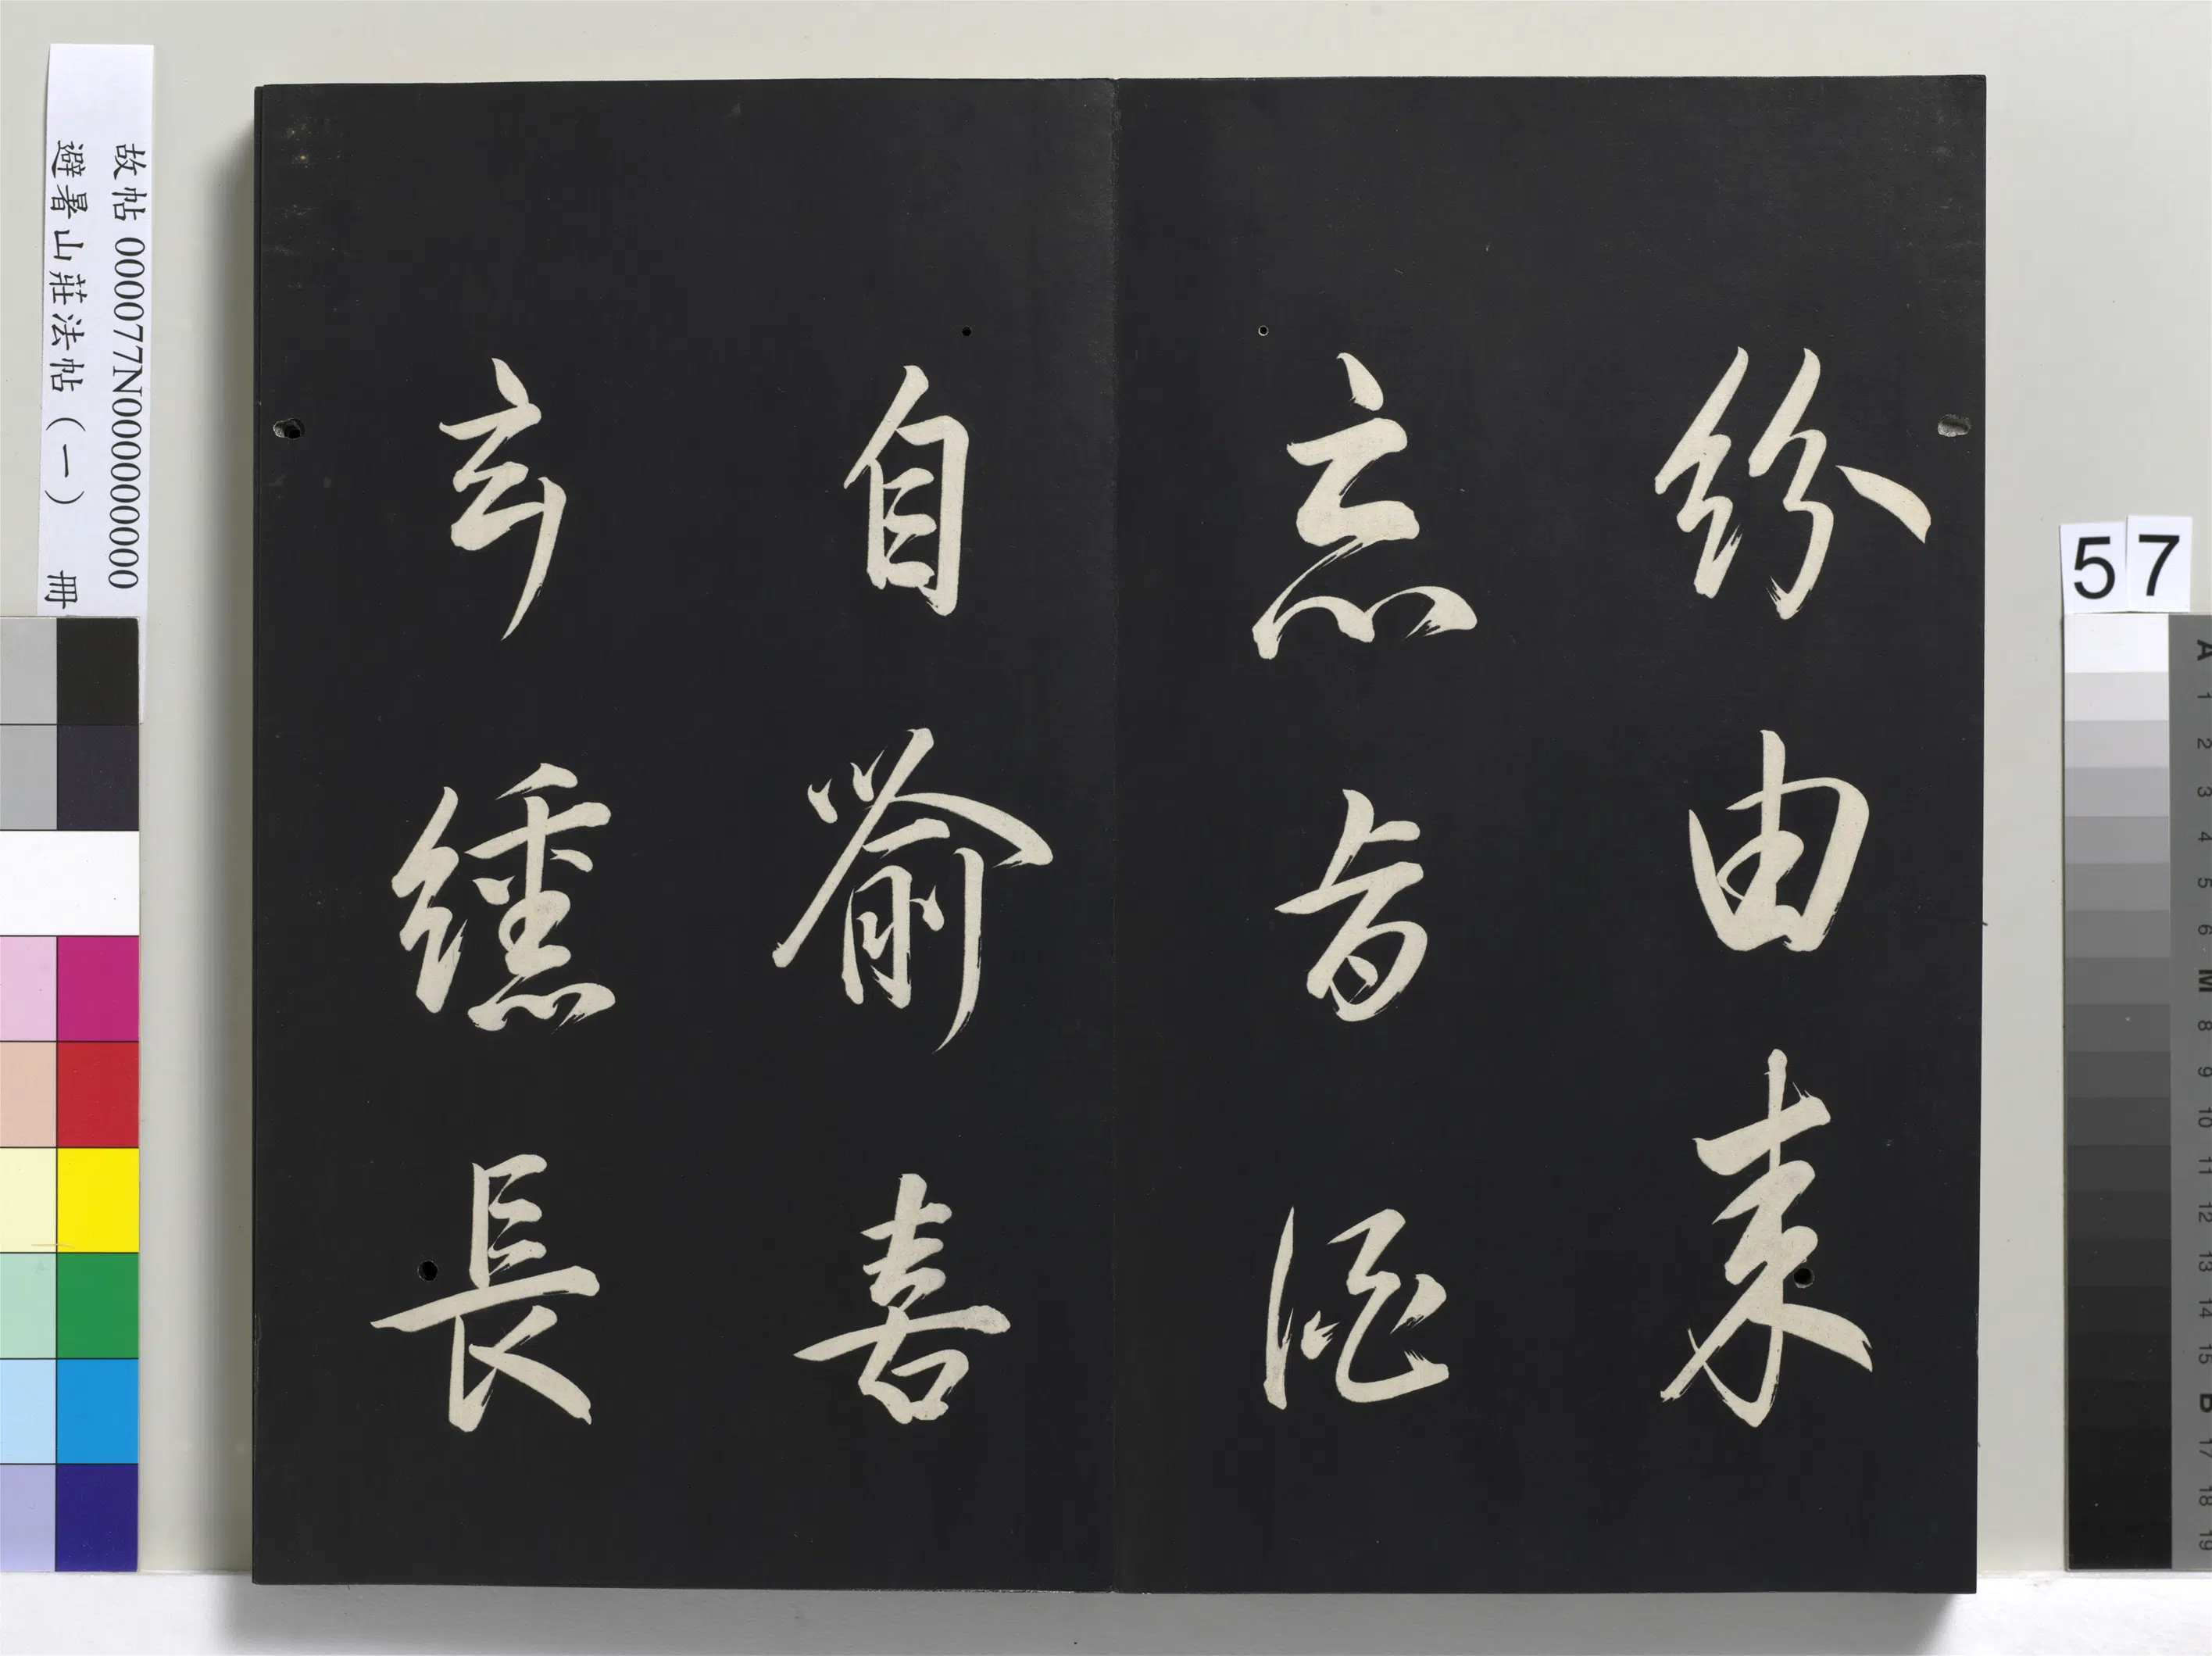 故帖 000077N000000000
避暑山莊法帖（一） 冊
紛由來
忘旨酒
自喻喜
玄纁長
57
A 1 2 3 4 5 6 M 8 9 10 11 12 13 14 15 B 17 18 19